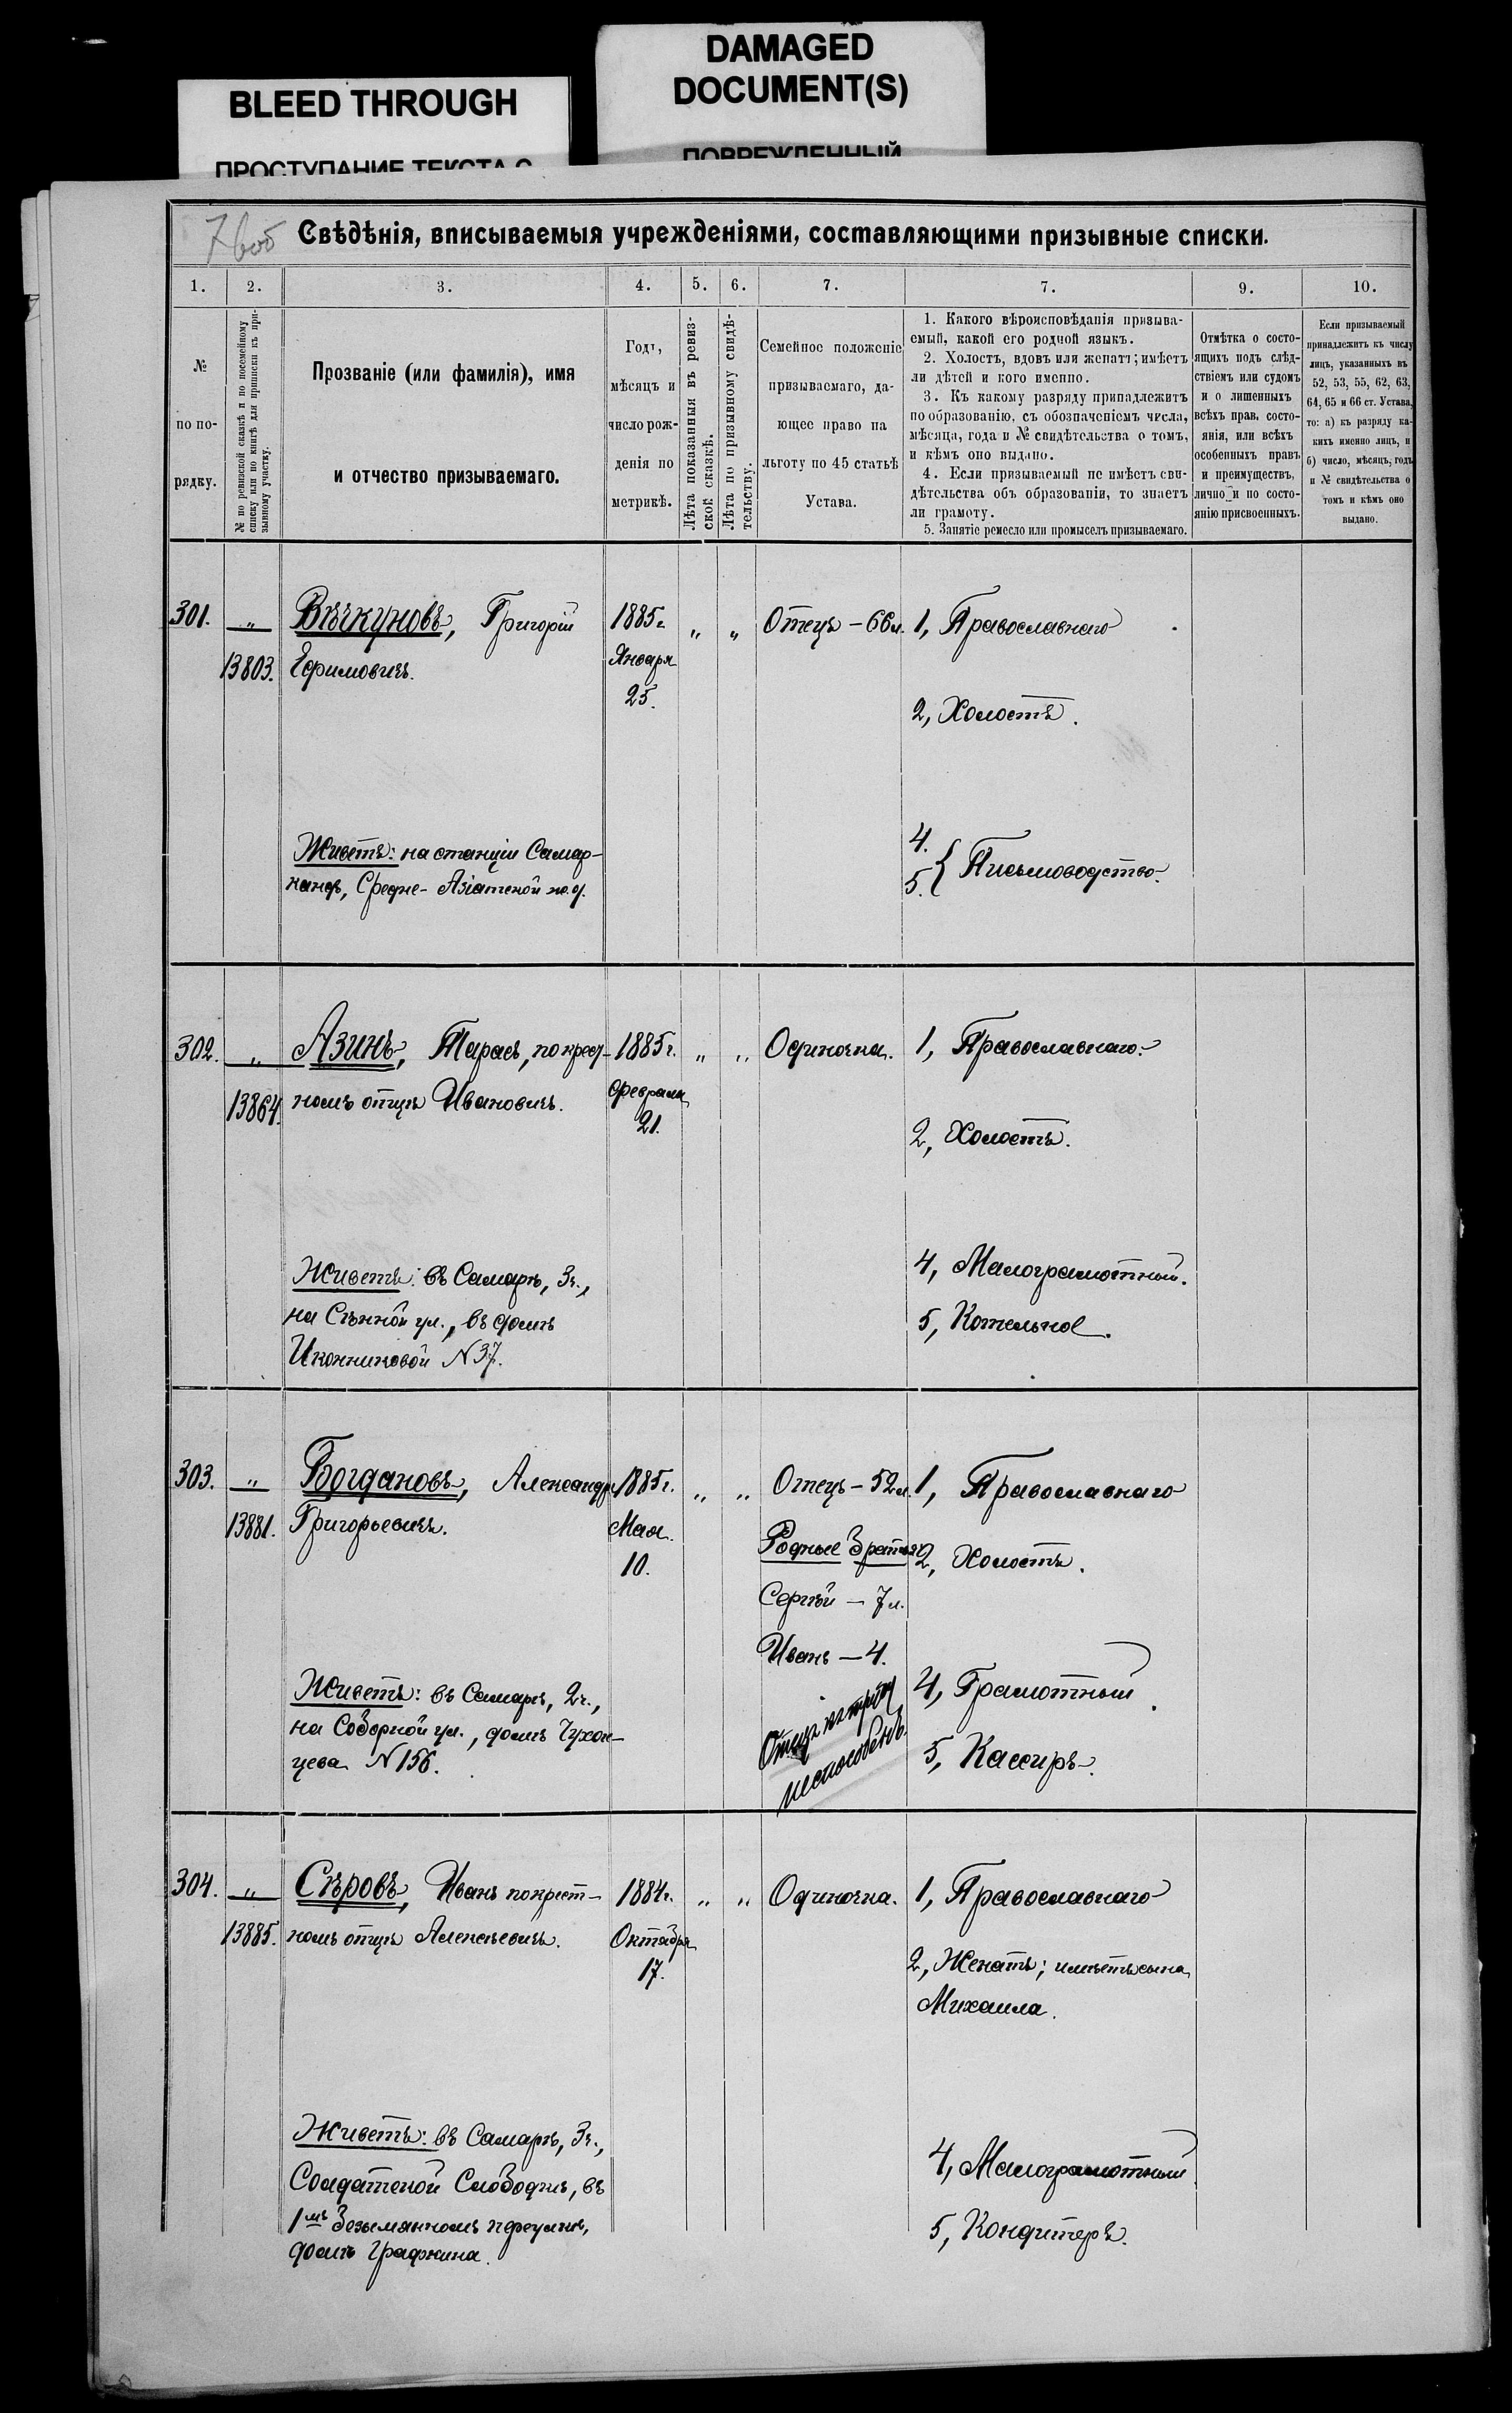 DAMAGED
DOCUMENT(S)
BLEED THROUGH
ПРОСТУПАНИЕ ТЕКСТА С
ПОВРЕЖДЕННЫЙ
Свѣдѣнія, вписываемыя учрежденіями, составляющими призывные списки.
1. 2. 3. 4. 5. 6. 7. 7. 9. 10.
№
по по-
рядку.
№ по ревизской сказкѣ и по посемейному
списку или по книгѣ для приписки къ при-
зывному участку.
Прозваніе (или фамилія), имя
и отчество призываемаго.
Годъ,
мѣсяцъ и
число рож-
денія по
метрикѣ.
Лѣта показанныя въ ревиз-
ской сказкѣ.
Лѣта по призывному свидѣ-
тельству.
Семейное положеніе
призываемаго, да-
ющее право на
льготу по 45 статьѣ
Устава.
1. Какого вѣроисповѣданія призыва-
емый, какой его родной языкъ.
2. Холостъ, вдовъ или женатъ; имѣетъ
ли дѣтей и кого именно.
3. Къ какому разряду принадлежитъ
по образованію, съ обозначеніемъ числа,
мѣсяца, года и № свидѣтельства о томъ,
и кѣмъ оно выдано.
4. Если призываемый не имѣетъ сви-
дѣтельства объ образованіи, то знаетъ
ли грамоту.
5. Занятіе ремесло или промыселъ призываемаго.
Отмѣтка о состо-
ящихъ подъ слѣд-
ствіемъ или судомъ
и о лишенныхъ
всѣхъ прав. состо-
янія, или всѣхъ
особенныхъ правъ
и преимуществъ,
лично и по состо-
янію присвоенныхъ.
Если призываемый
принадлежитъ къ числу
лицъ, указанныхъ въ
52, 53, 55, 62, 63,
64, 65 и 66 ст. Устава,
то: а) къ разряду ка-
кихъ именно лицъ, и
б) число, мѣсяцъ, годъ
и № свидѣтельства о
томъ и кѣмъ оно
выдано.
301. „ Вѣчкуновъ, Григорій 1885г. „ „ Отецъ – 66л. 1, Православнаго
13803. Ефимовичъ. Января
25.
2, Холостъ.
Живетъ: на станціи Самар-
кандъ, Средне-Азіатской ж.д.
4.
5. { Письмоводство.
302. „ Азинъ, Тарасъ, по крест- 1885г. „ „ Одиночка. 1, Православнаго.
13864. номъ отцѣ Ивановичъ. Февраля
21.
2, Холостъ.
Живетъ: въ Самарѣ, 3ч.,
на Сѣнной ул., въ домѣ
Иконниковой N 37.
4, Малограмотный.
5, Котельное.
303. „ Богдановъ, Александръ 1885г. „ „ Отецъ – 52л. 1, Православнаго
13881. Григорьевичъ. Мая
10.
Родные братья 2, Холостъ.
Сергѣй – 7л.
Иванъ – 4.
Живетъ: въ Самарѣ, 2ч.,
на Соборной ул., домъ Чухон-
цева N 156.
Отецъ къ труду
неспособенъ.
4, Грамотный.
5, Кассиръ.
304. „ Сѣровъ, Иванъ по крест- 1884г. „ „ Одиночка. 1, Православнаго
13885. номъ отцѣ Алексѣевичъ. Октября
17.
2, Женатъ; имѣетъ сына
Михаила.
Живетъ: въ Самарѣ, 3ч.,
Солдатской Слободкѣ, въ
1мъ Безымянномъ переулкѣ,
домъ Графкина.
4, Малограмотный
5, Кондитеръ.